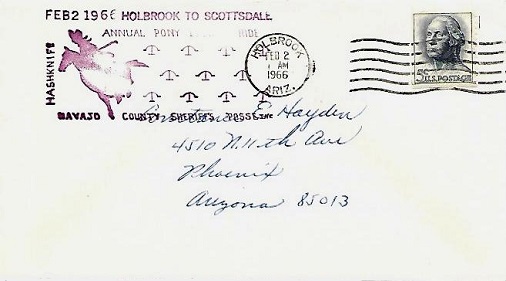 FEB 2 1966 HOLBROOK TO SCOTTSDALE
ANNUAL PONY RIDE
HASHKNIFE
NAVAJO COUNTY SHERIFF'S POSSE INC
HOLBROOK
FEB 2
AM
1966
ARIZ.
5¢ U.S. POSTAGE
Constance E Hayden
4510 N. 11th Ave
Phoenix
Arizona 85013